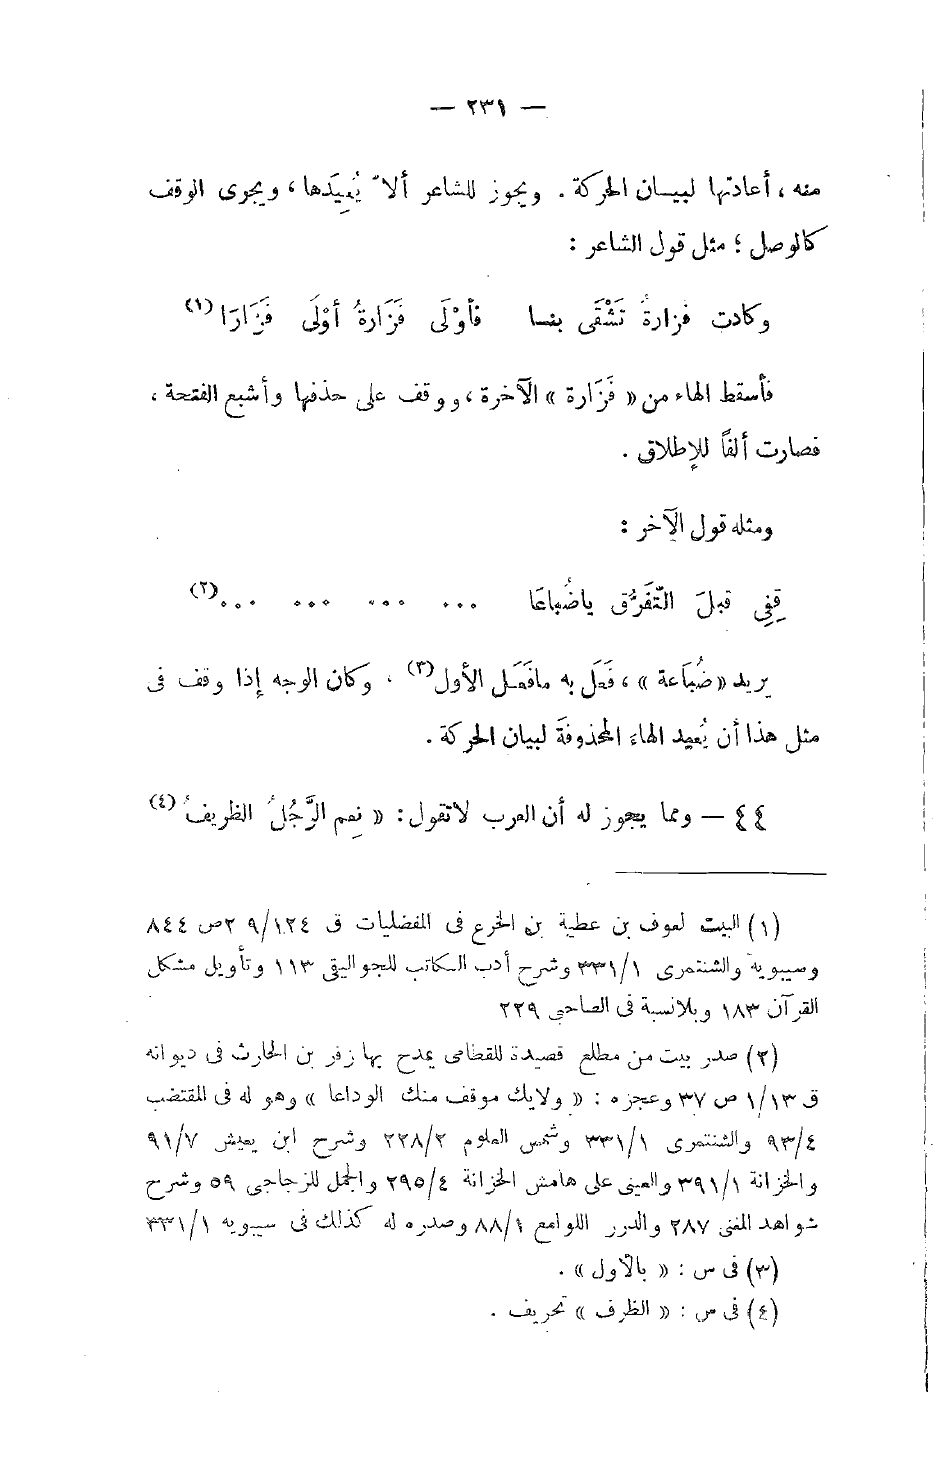 — ٢٣١ —
منه ، أعادتها لبيـان الحركة . ويجوز للشاعر ألاّ يُعِيدَها ، ويجرى الوقف
كالوصل ؛ مثل قول الشاعر :
وكادت فزارةُ تَشْقَى بنـا فأوْلَى فَزَارةُ أوْلَى فَزَارَا (١)
فأسقط الهاء من « فَزَارة » الآخرة ، ووقف على حذفها وأشبع الفتحة ،
فصارت ألفاً للإطلاق .
ومثله قول الآخر :
قِفِى قبلَ التَّفَرُّق ياضُباعَا ... ... ... ... (٢)
يريد « ضُبَاعة » ، فَعَل به مافَعَـل الأول (٣) . وكان الوجه إذا وقف فى
مثل هذا أن يُعيد الهاء المحذوفةَ لبيان الحركة .
٤٤ — ومما يجوز له أن العرب لاتقول : « نِعم الرَّجُلُ الظريفُ (٤)
(١) البيت لعوف بن عطية بن الخرع فى المفضليات ق ٩/١٢٤ ٢ص ٨٤٤
وسيبويه والشنتمرى ٣٣١/١ وشرح أدب الـكاتب للجواليقى ١١٣ وتأويل مشكل
القرآن ١٨٣ وبلانسبة فى الصاحبى ٢٢٩
(٢) صدر بيت من مطلع قصيدة للقطامى يمدح بها زفر بن الحارث فى ديوانه
ق ١/١٣ ص ٣٧ وعجزه : « ولايك موقف منك الوداعا » وهو له فى المقتضب
٩٣/٤ والشنتمرى ٣٣١/١ وشمس العلوم ٢٢٨/٢ وشرح ابن يعيش ٩١/٧
والخزانة ٣٩١/١ والعينى على هامش الخزانة ٢٩٥/٤ والجمل للزجاجى ٥٩ وشرح
شواهد المغنى ٢٨٧ والدرر اللوامع ٨٨/١ وصدره له كذلك فى سيبويه ٣٣١/١
(٣) فى س : « بالأول » .
(٤) فى س : « الظرف » تحريف .